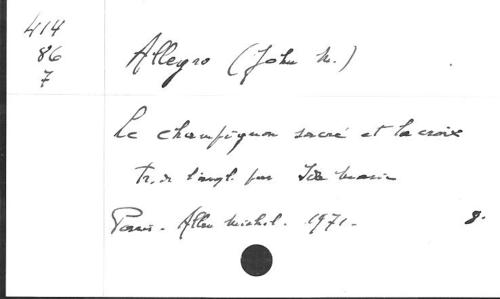 414
86
7
Allegro (John M.)
Le champignon sacré et la croix
tr. de l'angl. par Ida Marie
Paris - Albin Michel - 1971 -
8.